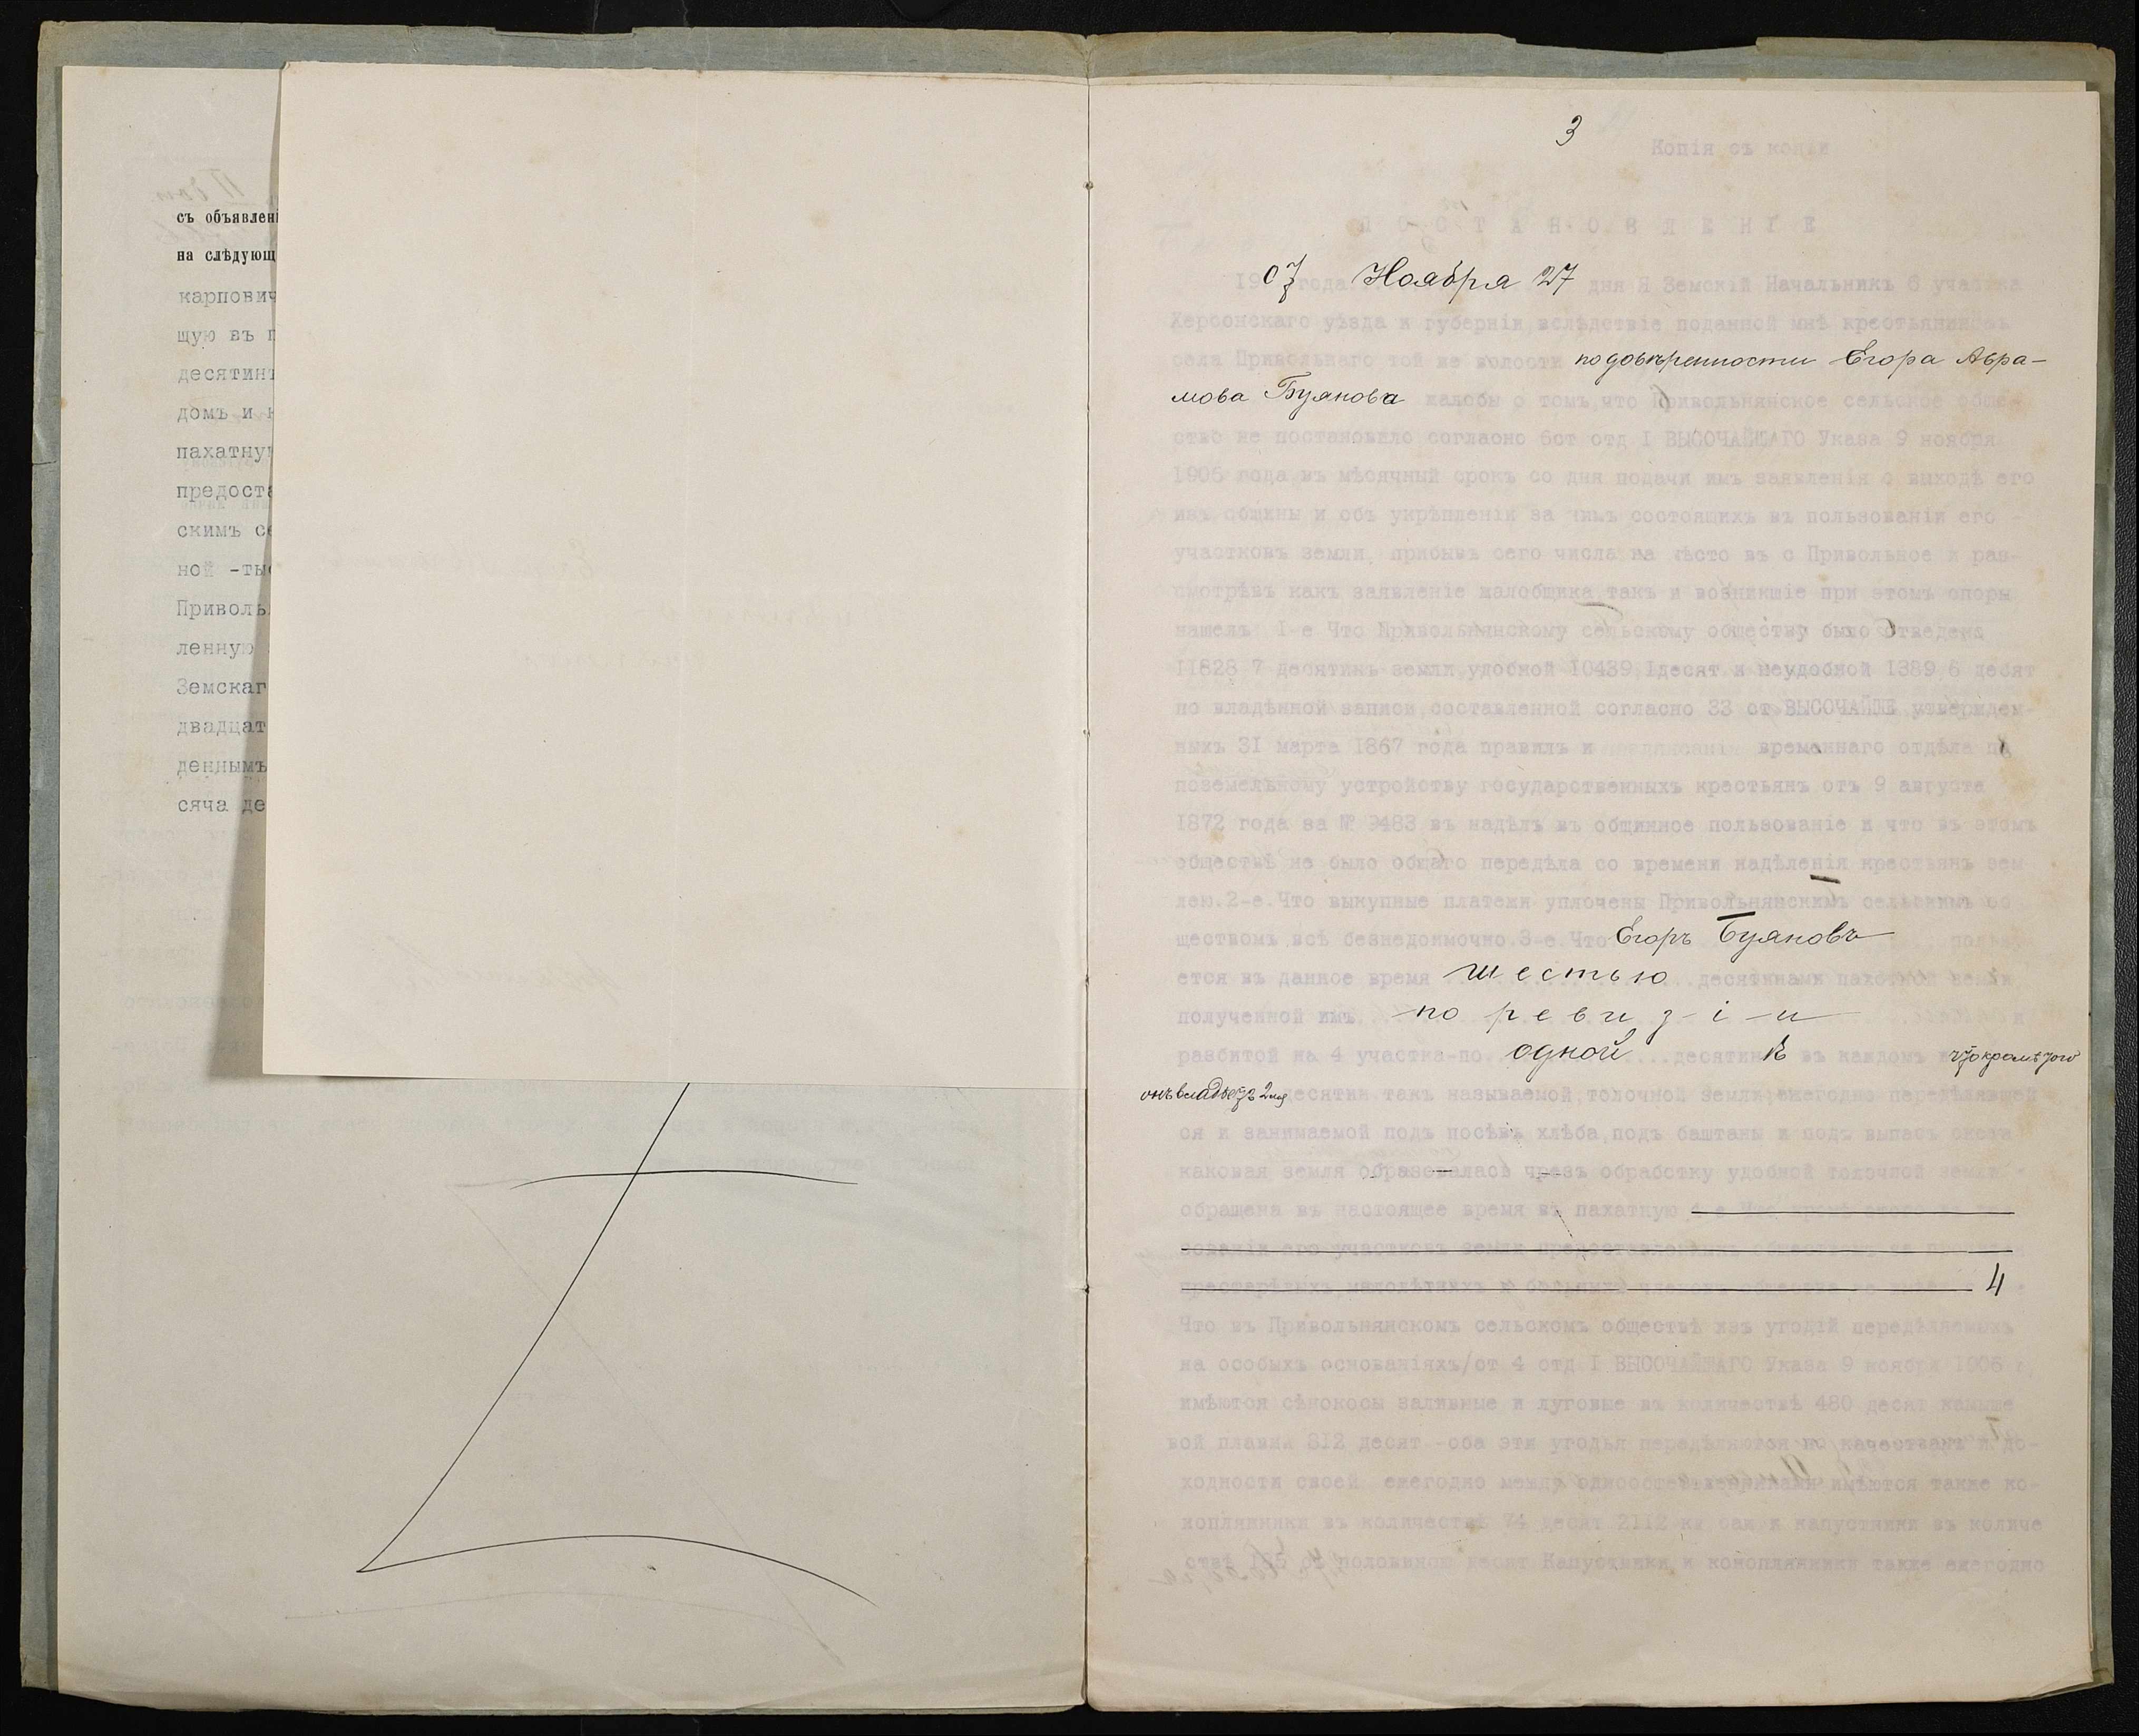 съ объявлен
на слѣдующ
карпович
щую въ п
десятин
домъ и
пахатну
предост
скимъ се
ной -ты
Приволь
ленную
Земскаг
двадцат
денным
сяча де
3
Копія съ копіи
ПОСТАНОВЛЕНІЕ
1907 года Ноября 27 дня Я Земскій Начальникъ 6 участка
Херсонскаго уѣзда и губерніи, вслѣдствіе поданной мнѣ крестьяниномъ
села Привольнаго той же волости по довѣренности Егора Авра-
мова Буянова жалобы о томъ, что Привольнянское сельское обще-
ство не постановило согласно 6ст отд I ВЫСОЧАЙШАГО Указа 9 ноября
1906 года въ мѣсячный срокъ со дня подачи имъ заявленія о выходѣ его
изъ общины и объ укрѣпленіи за нимъ состоящихъ въ пользованіи его
участковъ земли, прибывъ сего числа на мѣсто въ с Привольное и раз-
смотрѣвъ какъ заявленіе жалобщика, такъ и возникшіе при этомъ споры
нашелъ: 1-е Что Привольнянскому сельскому обществу было отведена
11828 7 десятинъ земли, удобной 10439,1десят и неудобной 1389,6 десят
по владѣнной записи, составленной согласно 33 ст ВЫСОЧАЙШЕ утвержден-
ныхъ 31 марта 1867 года правилъ и предписанія временнаго отдѣла по
поземельному устройству государственныхъ крестьянъ отъ 9 августа
1872 года за № 9483 въ надѣлъ въ общинное пользованіе и что въ этомъ
обществѣ не было общаго передѣла со времени надѣленія крестьянъ зем
лею. 2-е. Что выкупные платежи уплочены Привольнянскимъ сельскимъ об
ществомъ всѣ безнедоимочно. 3-е. Что Егоръ Буяновъ пользу
ется въ данное время шестью десятинами пахотной земли
полученной имъ по ревизіи и
разбитой на 4 участка-по одной десятинѣ въ каждомъ что кромѣ того
онъ владѣетъ 2мя десятин такъ называемой, толочной земли, ежегодно передѣлявшей
ся и занимаемой подъ посѣвъ хлѣба, подъ баштаны и подъ выпасъ скота
каковая земля образовалась чрезъ обработку удобной толочной земли
обращена въ настоящее время въ пахатную 4 е Что кромѣ этого
его участковъ земли
престарѣлыхъ малолѣтнихъ и больныхъ членовъ общества не 4
Что въ Привольнянскомъ сельскомъ обществѣ изъ угодій передѣляемыхъ
на особыхъ основаніяхъ/ст 4 отд I ВЫСОЧАЙШАГО Указа 9 ноября 1906 г
имѣются сѣнокосы заливные и луговые въ количествѣ 480 десят камыше
вой плавни 312 десят -оба эти угодья передѣляются по качествамъ и до-
ходности своей ежегодно между однообщественниками имѣются также ко-
нопляники въ количествѣ 74 десят 2112 кв саж и капустники въ количе
ствѣ половиною десят Капустники и конопляники также ежегодно